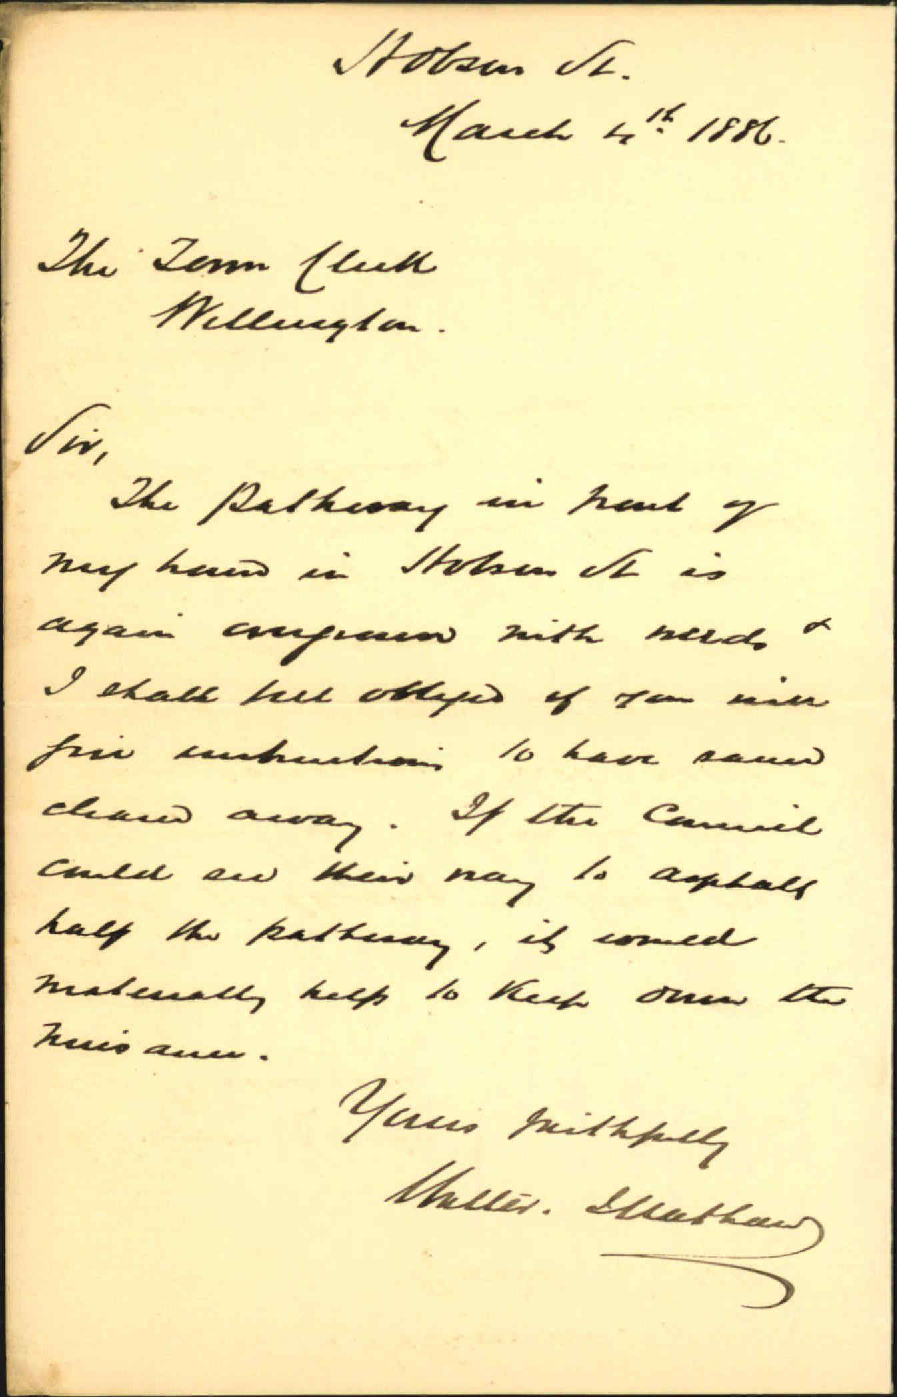 Hobson St.
March 4th 1886.
The Town Clerk
Wellington.
Sir,
The Pathway in front of
my house in Hobson St is
again overgrown with weeds &
I shall feel obliged if you will
give instructions to have same
cleared away. If the Council
could see their way to asphalt
half the pathway, it would
materially help to keep down the
nuisance.
Yours faithfully
Walter.